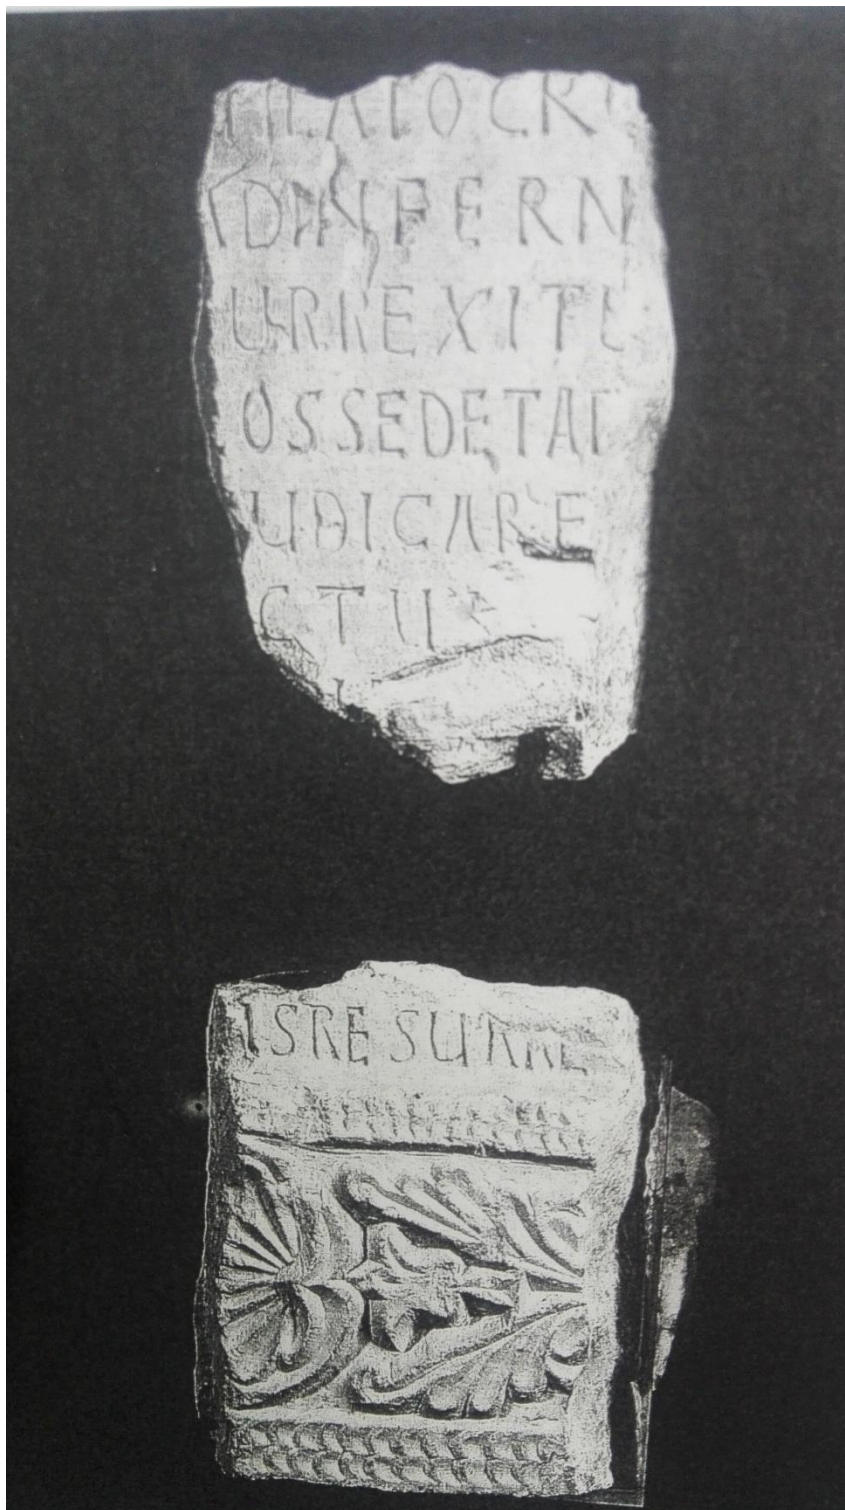 PILATOCR
DINFERN
URREXIT
OSSEDETAD
UDICARE
CTU
ISRESURRE